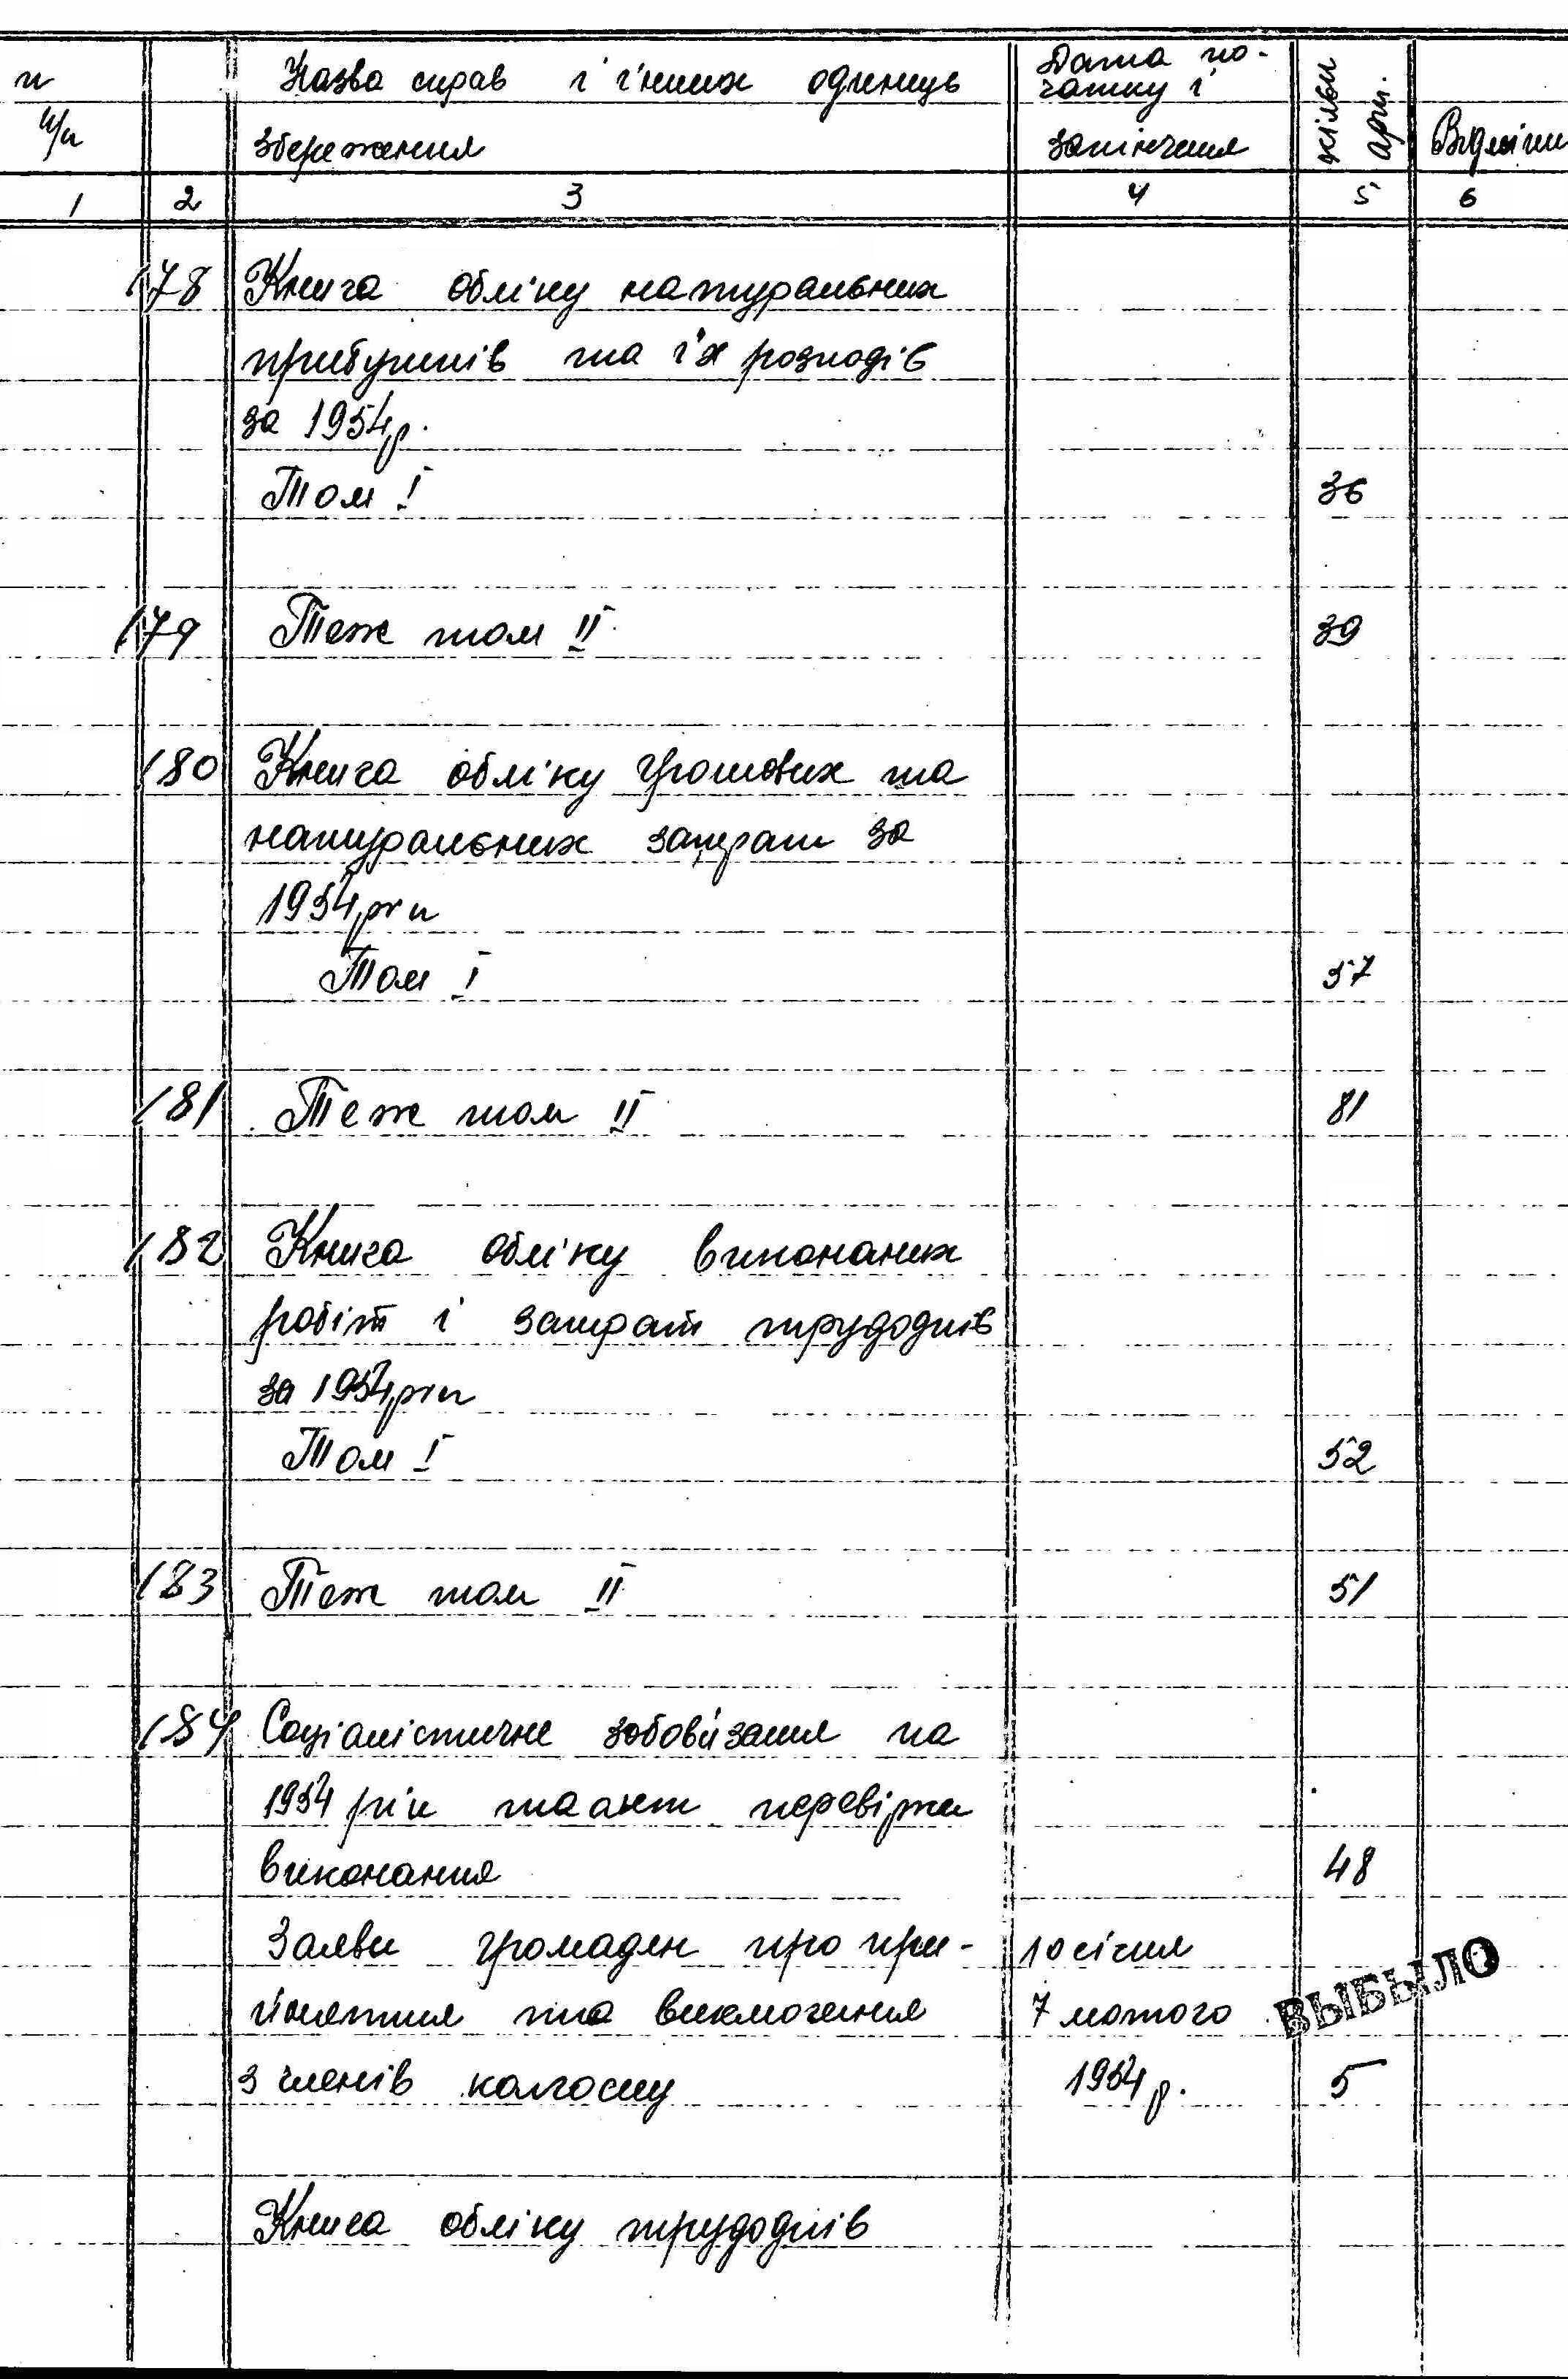 п Назва справ і інших одиниць Дата по-
чатку і
п/п збереження закінчення кільк. арк. Відмітки
1 2 3 4 5 6
178 Книга обліку натуральних
прибутків та їх розподів
за 1954 р.
Том I 36
179 Теж том II 39
180 Книга обліку грошових та
натуральних затрат за
1954 рік
Том I 57
181 Теж том II 81
182 Книга обліку виконаних
робіт і затрат трудоднів
за 1954 рік
Том I 52
183 Теж том II 51
184 Соціалістичне зобов'язання на
1954 рік та акт перевірки
виконання 48
Заяви громадян про при- 10 січня
йняття та виключення 7 лютого ВЫБЫЛО
з членів колгоспу 1954 р. 5
Книга обліку трудоднів